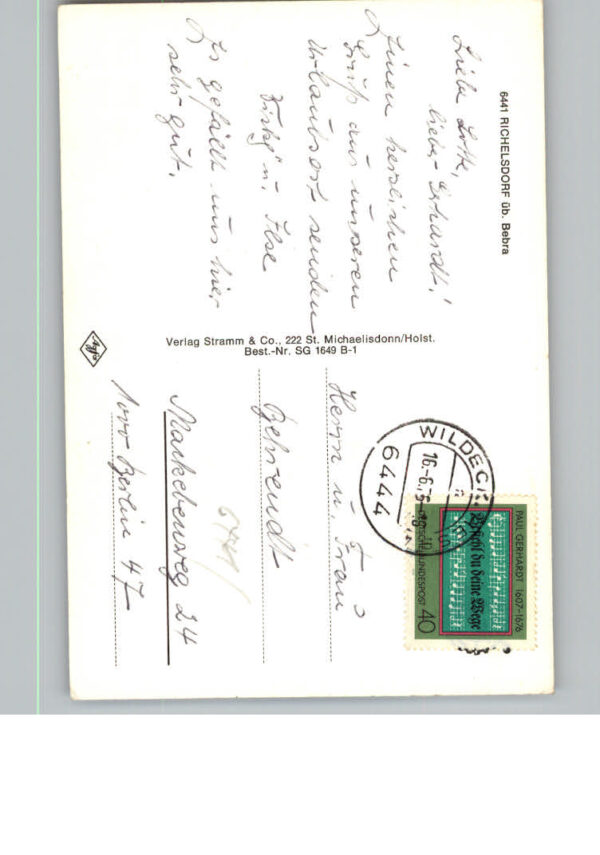 6441 RICHELSDORF üb. Bebra
Liebe Lotte,
lieber Erhardt!
Einen herzlichen
Gruß aus unseren
Urlaubsort senden
u. Ilse
Es gefällt uns hier
sehr gut.
Verlag Stramm & Co., 222 St. Michaelisdonn/Holst.
Best.-Nr. SG 1649 B-1
Agfa
WILDECK
16.-6.
6444
PAUL GERHARDT 1607-1676
Befiehl du deine Wege
DEUTSCHE BUNDESPOST 40
Herrn u. Frau
Behrendt
Markebenweg 24
1000 Berlin 47